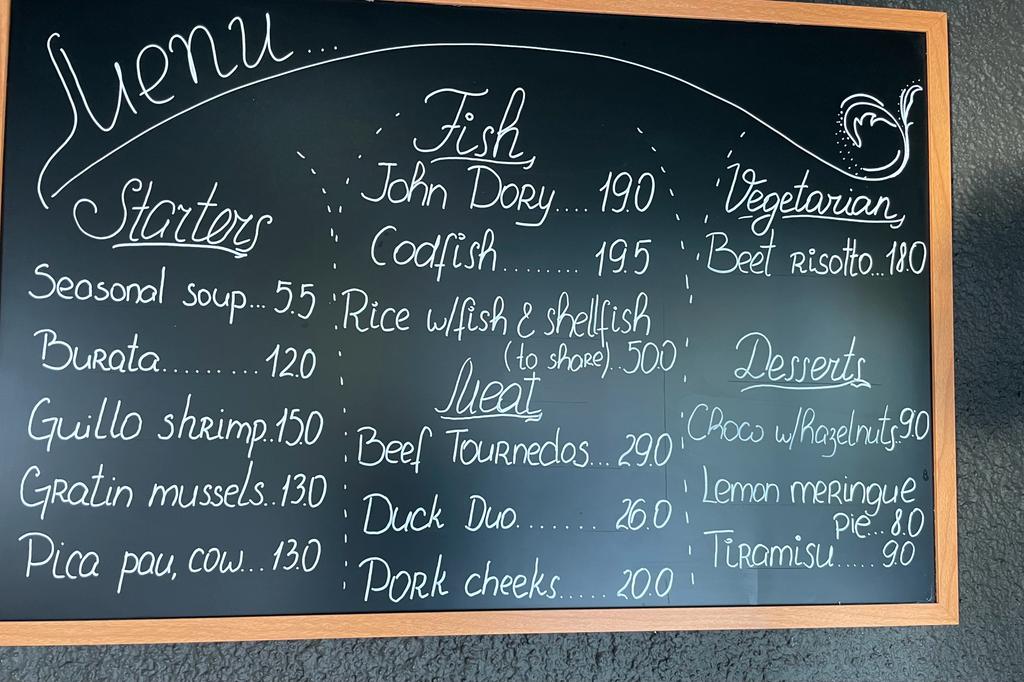 Menu...
Starters
Seasonal soup... 5.5
Burata......... 12.0
Guillo shrimp..15.0
Gratin mussels..13.0
Pica pau, cow...13.0
Fish
John Dory.... 19.0
Codfish........ 19.5
Rice w/fish & shellfish
(to share)..50.0
Meat
Beef Tournedos... 29.0
Duck Duo....... 26.0
Pork cheeks...... 20.0
Vegetarian
Beet risotto...18.0
Desserts
Choco w/hazelnuts.9.0
Lemon meringue
pie...8.0
Tiramisu..... 9.0